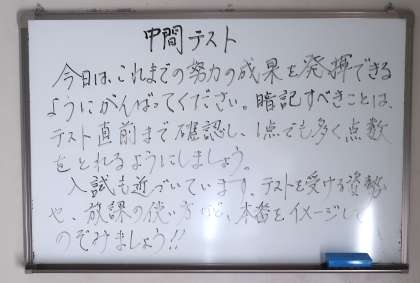 中間テスト
今日は、これまでの努力の成果を発揮できる
ようにがんばってください。暗記すべきことは、
テスト直前まで確認し、1点でも多く点数
をとれるようにしましょう。
入試も近づいています。テストを受ける資勢
や、放課の使い方など、本番をイメージして
のぞみましょう!!